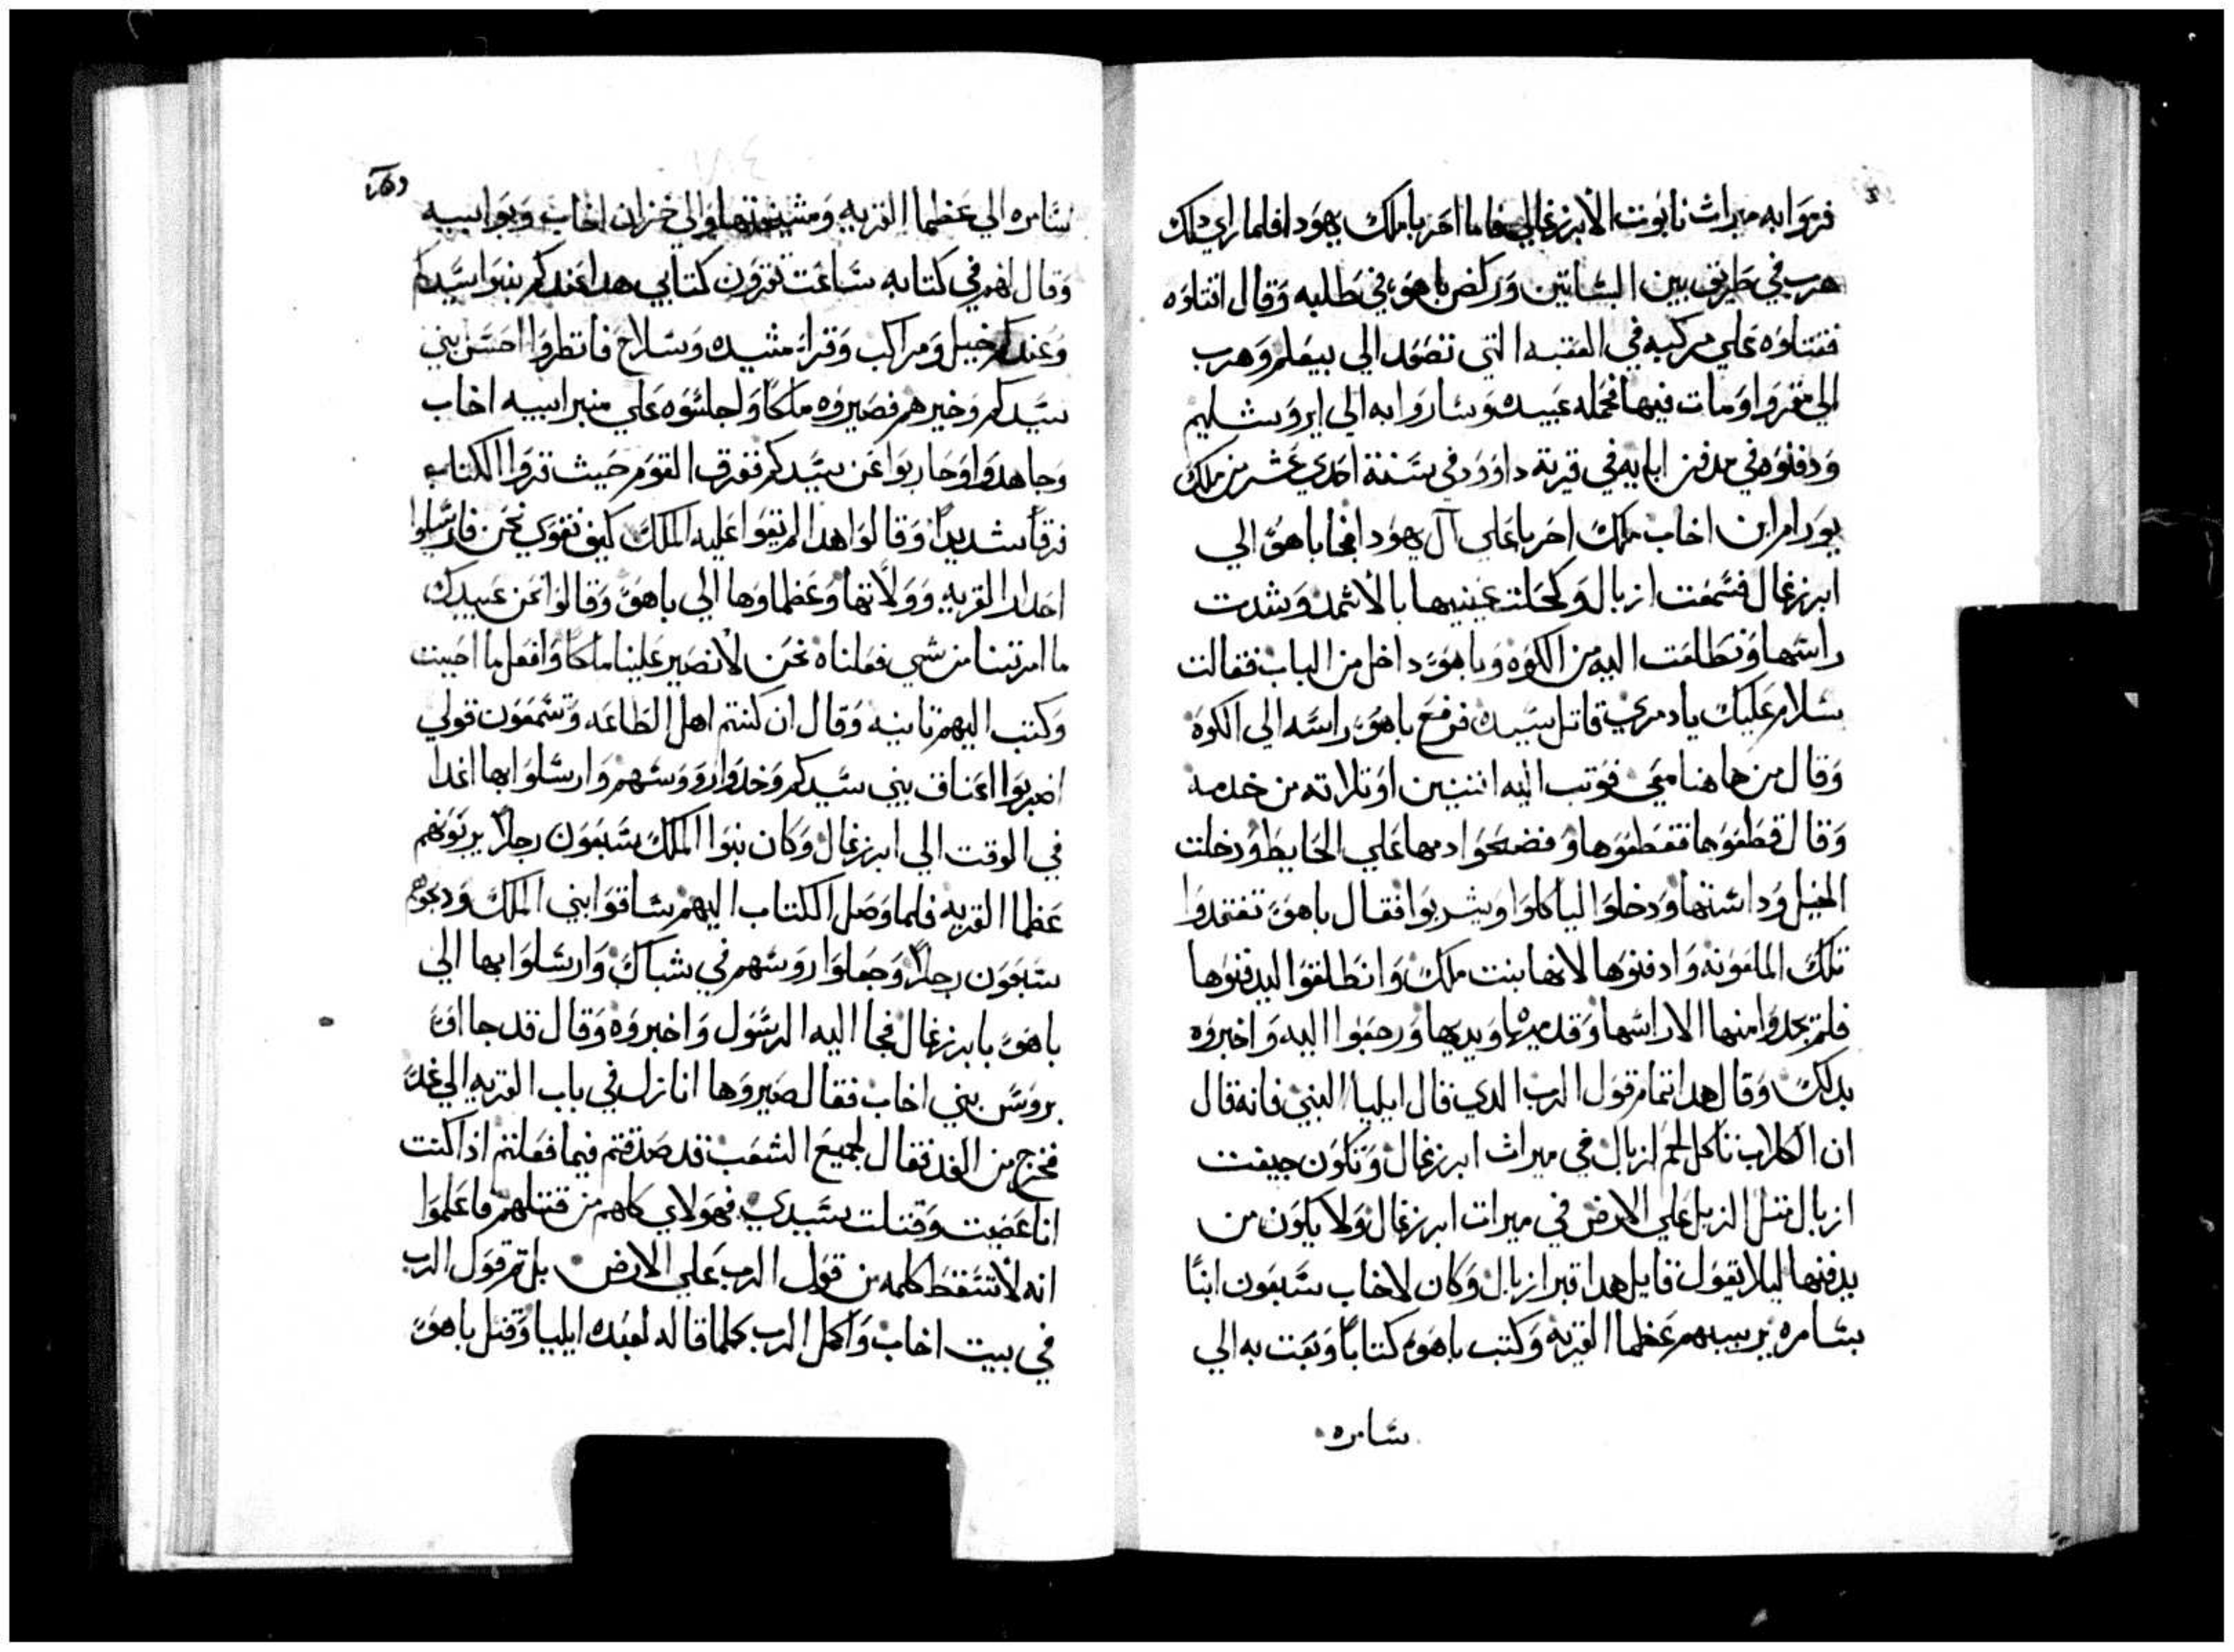 فرموا به ميراث نابوت الابرزغالي فاما احزيا ملك يهودا فلما راي دلك
هرب في طريق بين البساتين وركض ياهو في طلبه وقال اقتلوه
فقتلوه علي مركبه في العقبه التي تصعد الي يبعلم وهرب
الي مغروا ومات فيها فحمله عبيده وساروا به الي ايروشليم
ودفنوه في مدفن ابايه في قرية داوود في سنة احدي عشر من ملك
يورام ابن اخاب ملك احزيا علي آل يهودا فجا ياهو الي
ابرزغال فسمعت ازبال وكحلت عينيها بالاثمد وشدت
راسها وتطلعت اليه من الكوه وياهو داخل من الباب فقالت
سلام عليك يا دمري قاتل سيده فرفع ياهو راسه الي الكوه
وقال من هاهنا معي فوتب اليه اتنين او تلاته من خدمه
وقال قطعوها فقطعوها وفضحوا دمها علي الحايط ودخلت
الخيل وداستها ودخلوا لياكلوا ويشربوا فقال ياهو تفتقدوا
تلك الملعونه وادفنوها لانها بنت ملك وانطلقوا ليدفنوها
فلم يجدوا منها الا راسها وقدميها ويديها ورجعوا اليه واخبروه
بدلك وقال هدا تمام قول الرب الدي قال ايليا النبي فانه قال
ان الكلاب تاكل لحم ازبال في ميراث ابرزغال وتكون جيفت
ازبال متل الزبل علي الارض في ميرات ابرزغال ولا يكون من
يدفنها ليلا يقول قايل هدا قبر ازبال وكان لاخاب سبعون ابنًا
بسامره يربيهم عظما القريه وكتب ياهو كتابًا وبعت به الي
سامره
سامره الي عظما القريه ومشيختها والي خزان اخاب وبوابيه
وقال لهم في كتابه ساعت تقرون كتابي هدا عندكم بنوا سيدكم
وعندكم خيل ومراكب وقرا مشيده وسلاح فانظروا احسن بني
سيدكم وخيرهم فصيروه ملكًا واجلسوه علي منبر ابيه اخاب
وجاهدوا وحاربوا عن سيدكم ففرق القوم حيث قروا الكتاب
فرقًا شديدًا وقالوا هدا لم يقوا عليه الملك كيف نقوي نحن فارسلوا
احدار القريه وولاتها وعظماوها الي ياهو وقالوا نحن عبيدك
ما امرتنا من شي فعلناه نحن لا نصير علينا ملكًا وافعل ما احببت
وكتب اليهم تانيه وقال ان كنتم اهل الطاعه وتسمعون قولي
اضربوا اعناق بني سيدكم وخدوا رووسهم وارسلوا بها اغدا
في الوقت الي ابرزغال وكان بنوا الملك سبعون رجلًا يربونهم
عظما القريه فلما وصل الكتاب اليهم ساقوا بني الملك ودبحوهم
سبعون رجلًا وجعلوا روسهم في شباك وارسلوا بها الي
ياهو بابرزغال فجا اليه الرسول واخبروه وقال قد جا اق
بروس بني اخاب فقال صيروها انازل في باب القريه الي غد
فخرج من الغد فقال لجميع الشعب قد صدقتم فيما فعلتم اذا كنت
انا عصيت وقتلت سيدي فهولاي كلهم من قتلهم فاعلموا
انه لا تسقط كلمه من قول الرب علي الارض بل تم قول الرب
في بيت اخاب واكمل الرب كلما قاله لعبده ايليا وقتل ياهو